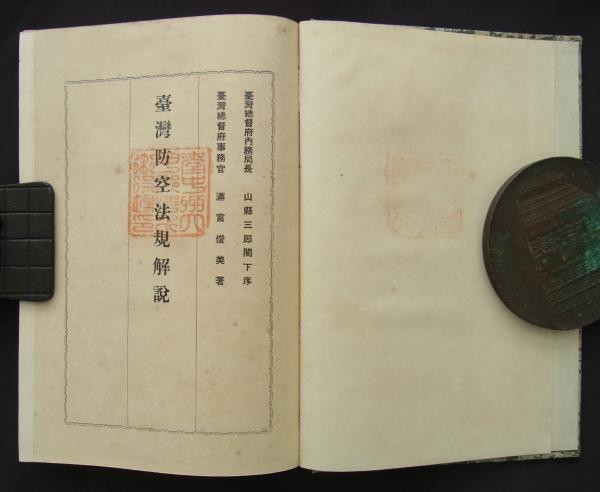 臺灣總督府內務局長 山縣三郎閣下序
臺灣總督府事務官 滿富俊美著
臺灣防空法規解說